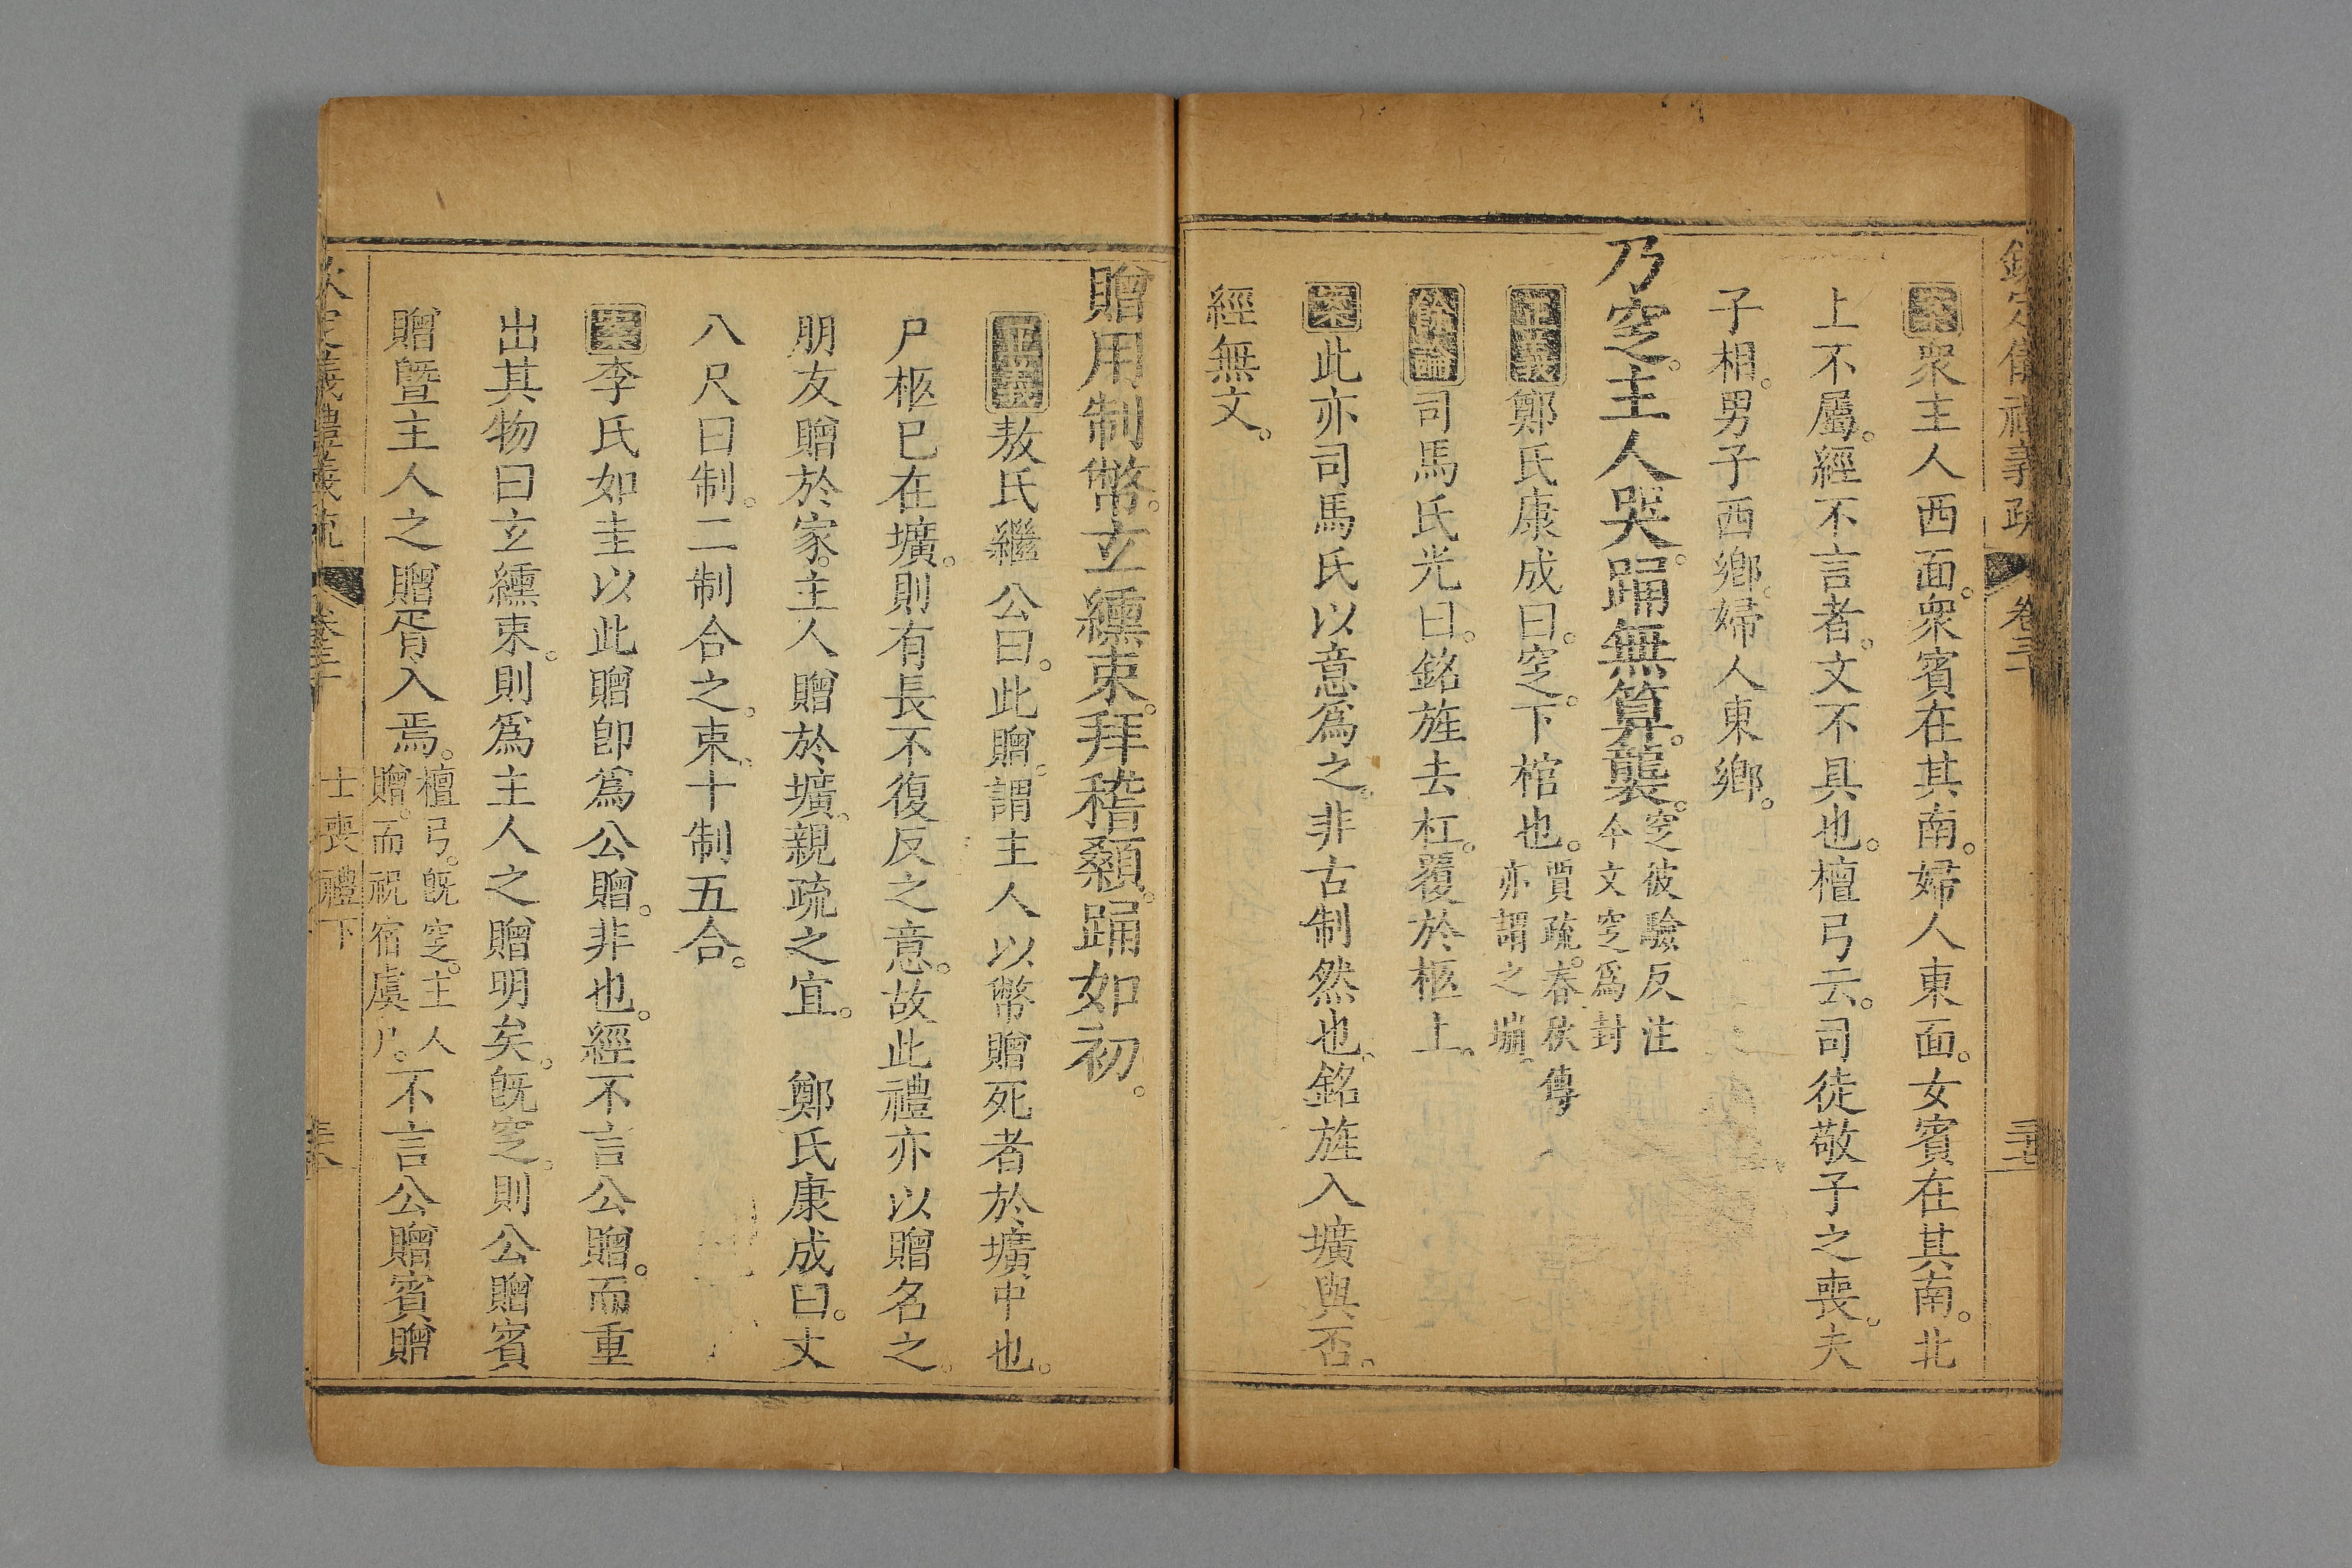 欽定儀禮義疏　卷三十
案衆主人西面。衆賓在其南。婦人東面。女賓在其南。北
上不屬。經不言者。文不具也。檀弓云。司徒敬子之喪。夫
子相。男子西鄉。婦人東鄉。
乃窆。主人哭。踊無算。襲。窆彼驗反注
今文窆爲封
正義鄭氏康成曰。窆。下棺也。賈疏。春秋傳
亦謂之塴。
餘論司馬氏光曰。銘旌去杠。覆於柩上。
案此亦司馬氏以意爲之。非古制然也。銘旌入壙與否。
經無文。
贈用制幣。玄纁束。拜稽顙。踊如初。
正義敖氏繼公曰。此贈。謂主人以幣贈死者於壙中也。
尸柩已在壙。則有長不復反之意。故此禮亦以贈名之。
朋友贈於家。主人贈於壙。親疏之宜。　鄭氏康成曰。丈
八尺曰制。二制合之。束。十制五合。
案李氏如圭以此贈卽爲公贈。非也。經不言公贈。而重
出其物曰玄纁束。則爲主人之贈明矣。旣窆。則公贈賓
贈曁主人之贈胥入焉。檀弓。旣窆。主人
贈。而祝宿虞尸。不言公贈賓贈
欽定儀禮義疏　卷三十　士喪禮下